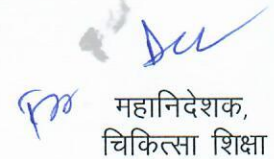 महानिदेशक,
चिकित्सा शिक्षा